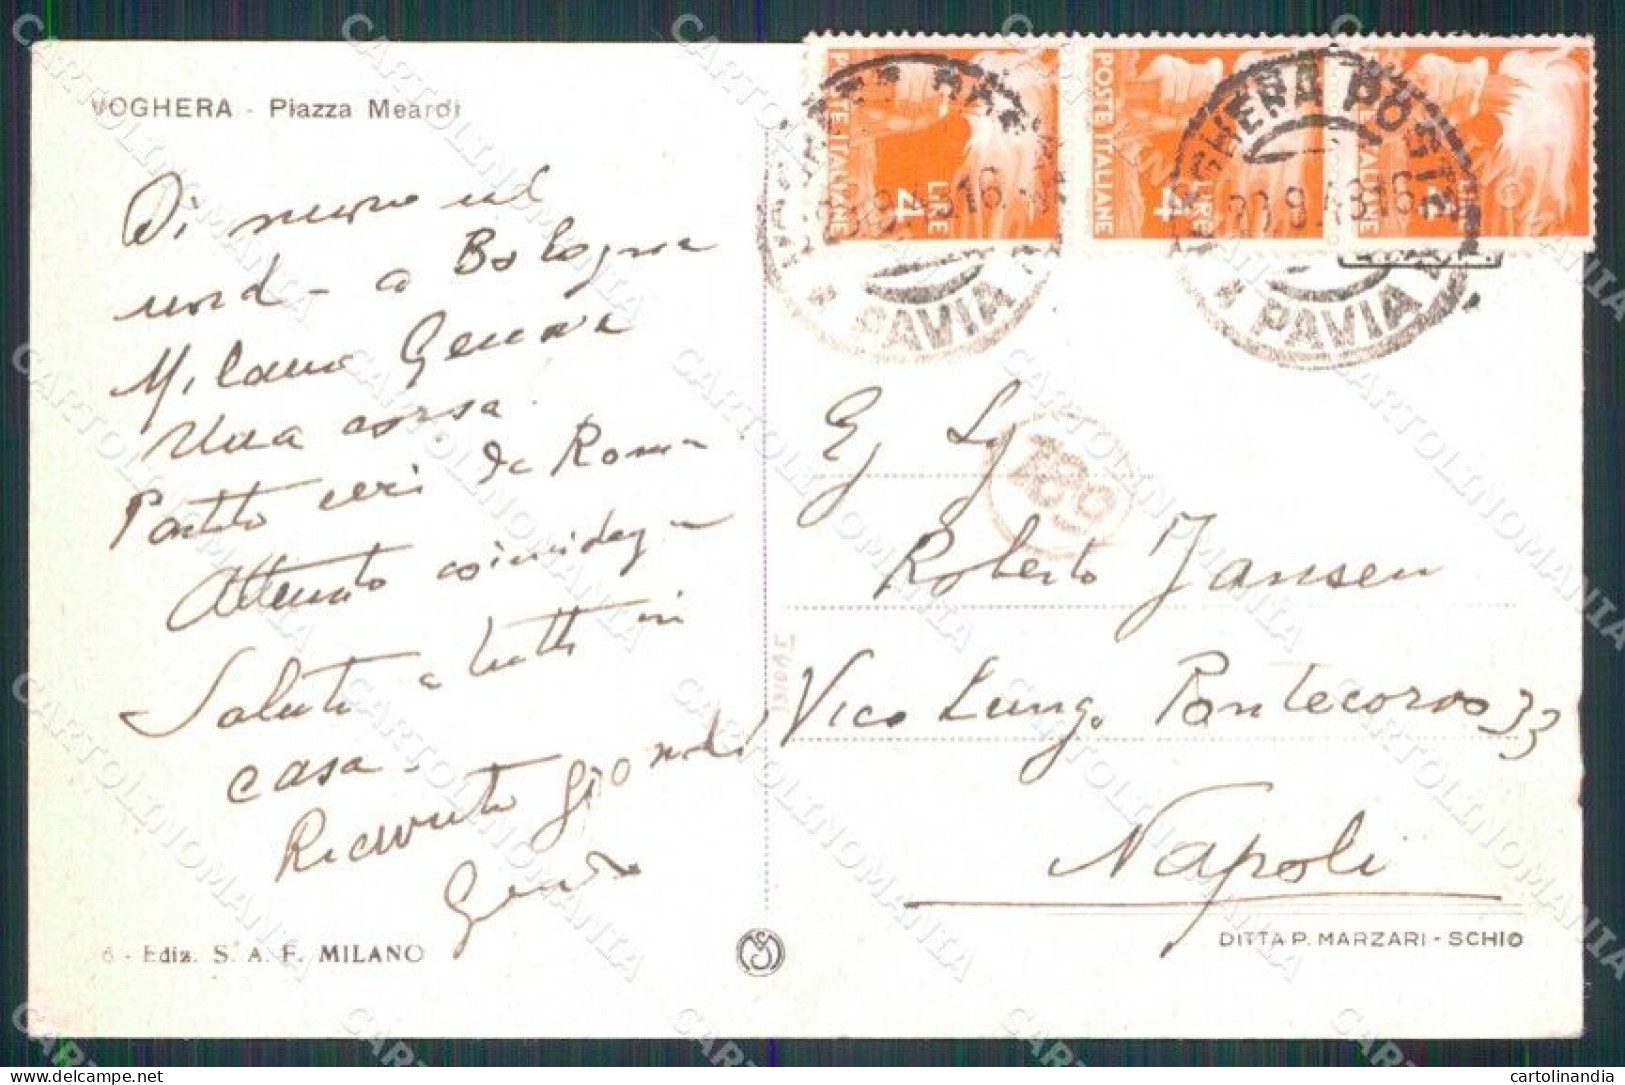 VOGHERA - Piazza Meardi
Di nuovo al
nord - a Bologna
Milano Genova
Una corsa.
Partito ieri da Roma
Attento
Saluti a tutti in
casa -
Ricevuto
6 - Ediz. S. A. F. MILANO
POSTE ITALIANE
LIRE 4
POSTE ITALIANE
LIRE 4
ITALIANE
VOGHERA POSTE
PAVIA
VOGHERA POSTE
PAVIA
Eg Sg
Roberto Jansen
Vico Lungo Pontecorvo 33
Napoli
DITTA P. MARZARI - SCHIO
CARTOLINOMANIA
cartolinandia